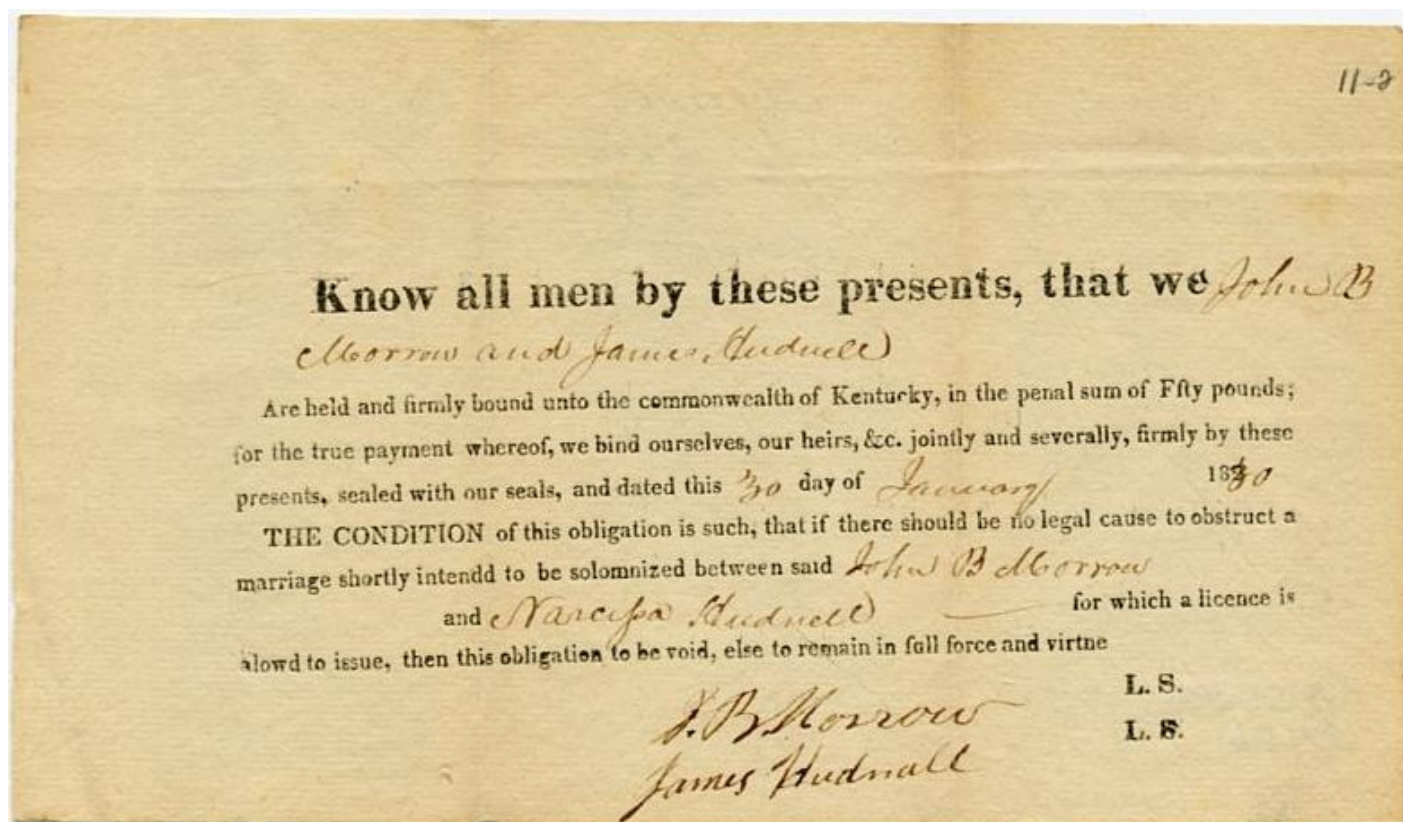 11-2
Know all men by these presents, that we John B
Morrow and James Hudnell
Are held and firmly bound unto the commonwealth of Kentucky, in the penal sum of Ffty pounds;
for the true payment whereof, we bind ourselves, our heirs, &c. jointly and severally, firmly by these
presents, sealed with our seals, and dated this 30 day of January 1830
THE CONDITION of this obligation is such, that if there should be no legal cause to obstruct a
marriage shortly intendd to be solomnized between said John B Morrow
and Narcissa Hudnell for which a licence is
alowd to issue, then this obligation to be void, else to remain in full force and virtne
L. S.
J. B. Morrow
L. S.
James Hudnall